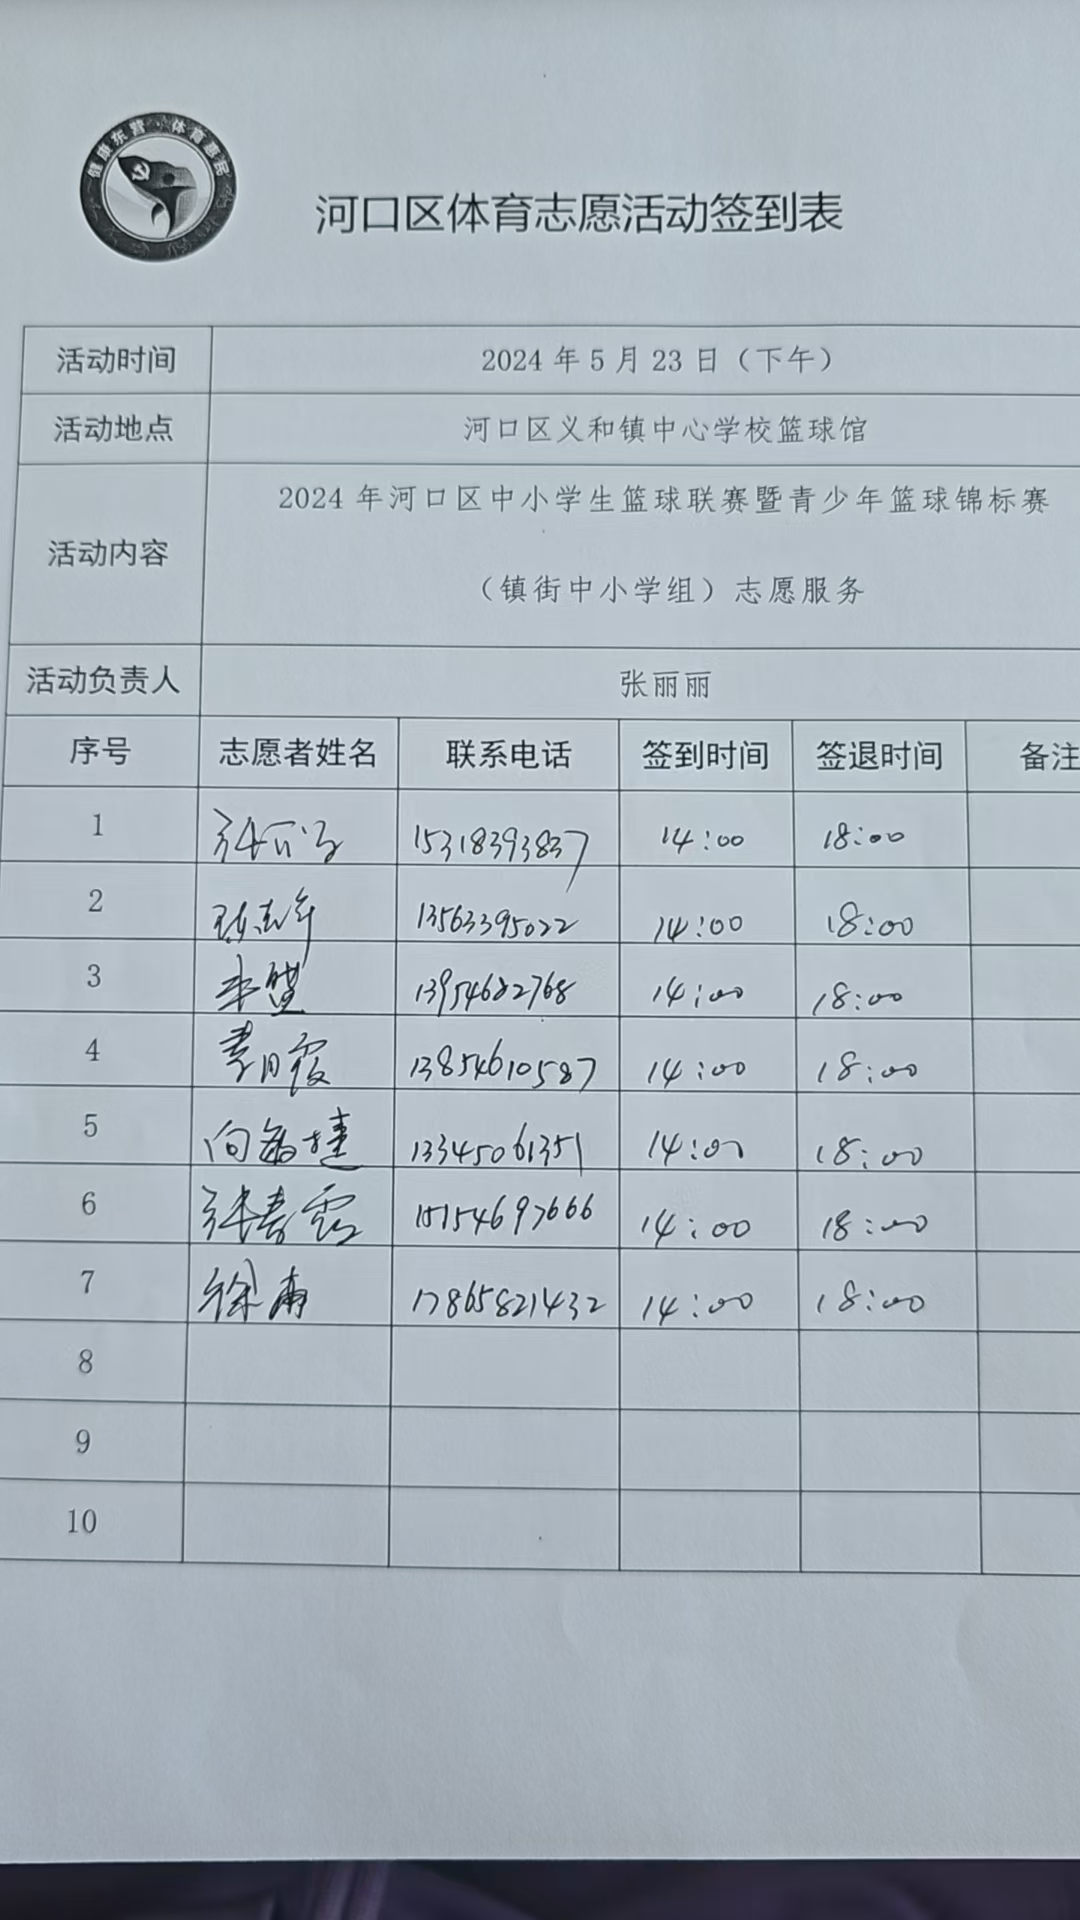 健康东营·体育惠民
河口区体育志愿活动签到表
活动时间 2024年5月23日（下午）
活动地点 河口区义和镇中心学校篮球馆
活动内容 2024年河口区中小学生篮球联赛暨青少年篮球锦标赛
（镇街中小学组）志愿服务
活动负责人 张丽丽
序号 志愿者姓名 联系电话 签到时间 签退时间 备注
1 15318393837 14:00 18:00
2 13563395022 14:00 18:00
3 13954682768 14:00 18:00
4 李月霞 13854610587 14:00 18:00
5 向敏捷 13345061351 14:00 18:00
6 张春霞 15154697666 14:00 18:00
7 徐南 17865821432 14:00 18:00
8
9
10